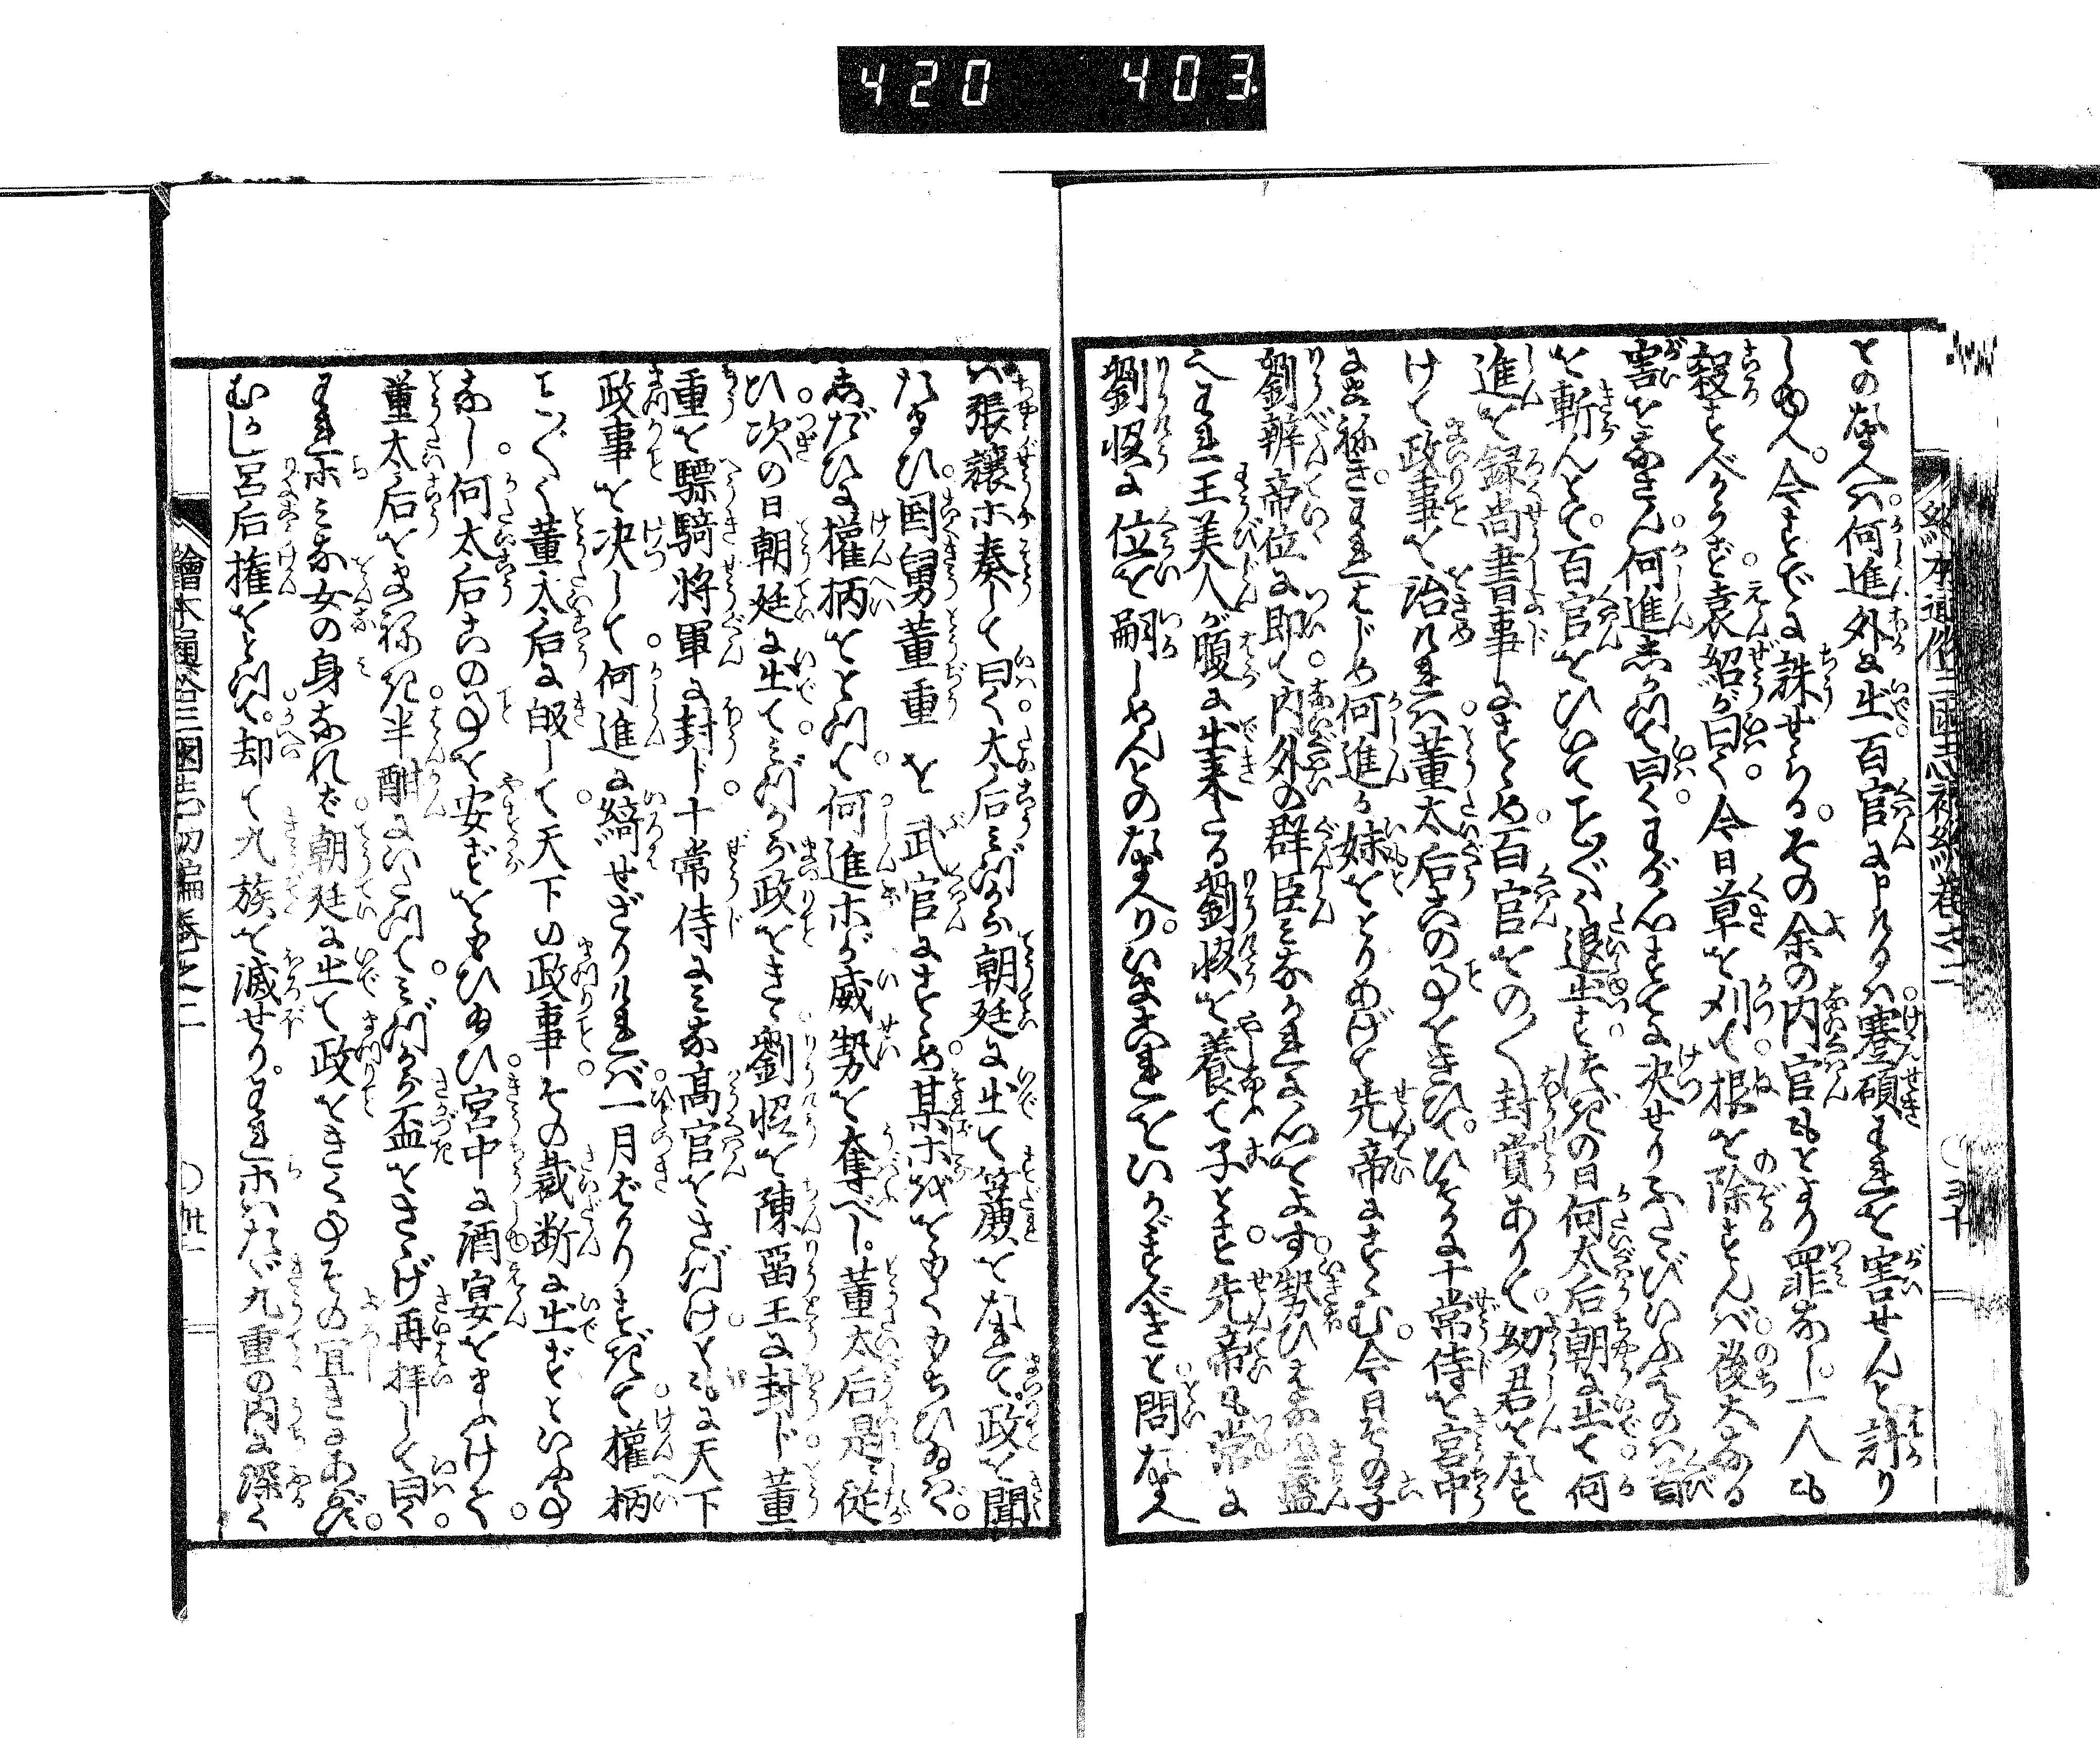 420 403
との給へバ。何進外に出百官に申けるハ蹇碩われを害せんと計り
しゆへ。今すでに誅せらる。その余の内官もとより罪なし。一人も
殺すべからず。袁紹が曰く今日草を刈て根を除ずんバ後大なる
害をなさん。何進しかつて曰く。わが心すでに決せりふたゝびいふものハ首
を斬んとて。百官をひいてことごとく退出す次の日何太后朝に出て何
進を録尚書事にすゝめ。百官をの〱封賞ありて。幼君をたす
けて政事を治けれバ董太后このことをきひて。ひそかに十常侍を宮中
にまねき。われはじめ何進が妹をとりあげて先帝にすゝむ。今日その子
劉辨帝位に即て内外の群臣みなかれに心をよす勢ひはなハだ盛
へわれ王美人が腹に出来たる劉恊を養て子とす。先帝も常に
劉恊に位を嗣しめんとの給へり。いまこれをいかがすべきと問給へ
バ張譲ホ奏して曰く。太后みづから朝廷に出て簾をたれて。政を聞
たまひ。国舅董重を武官にすゝめ。某ホをおもくもちひ給ハヾ。
しだひに權柄をとつて。何進ホが威勢を奪べし。董太后是に従
ひ。次の日朝廷に出て。みづから政をきゝ劉恊を陳畱王に封ド。董
重を驃騎将軍に封ド。十常侍にみな高官をさづけ。ともに天下
政事を決して。何進に綺せざりけれバ。一月ばかりすぎて。權柄
ことごとく董太后に皈して。天下の政事。その裁断に出ずといふこと
なし。何太后このことを安ずおもひ給ひ。宮中に酒宴をまふけて。
董太后をまねき半酣にいたつて。みづから盃をさゝげ再拝して曰く。
われホみな女の身なれば。朝廷に出て政をきくことその宜きにあらず。
むかし呂后権をとつて。却て九族を滅せり。われホハたゞ九重の内に深く
繪本通俗三國志初編巻之二